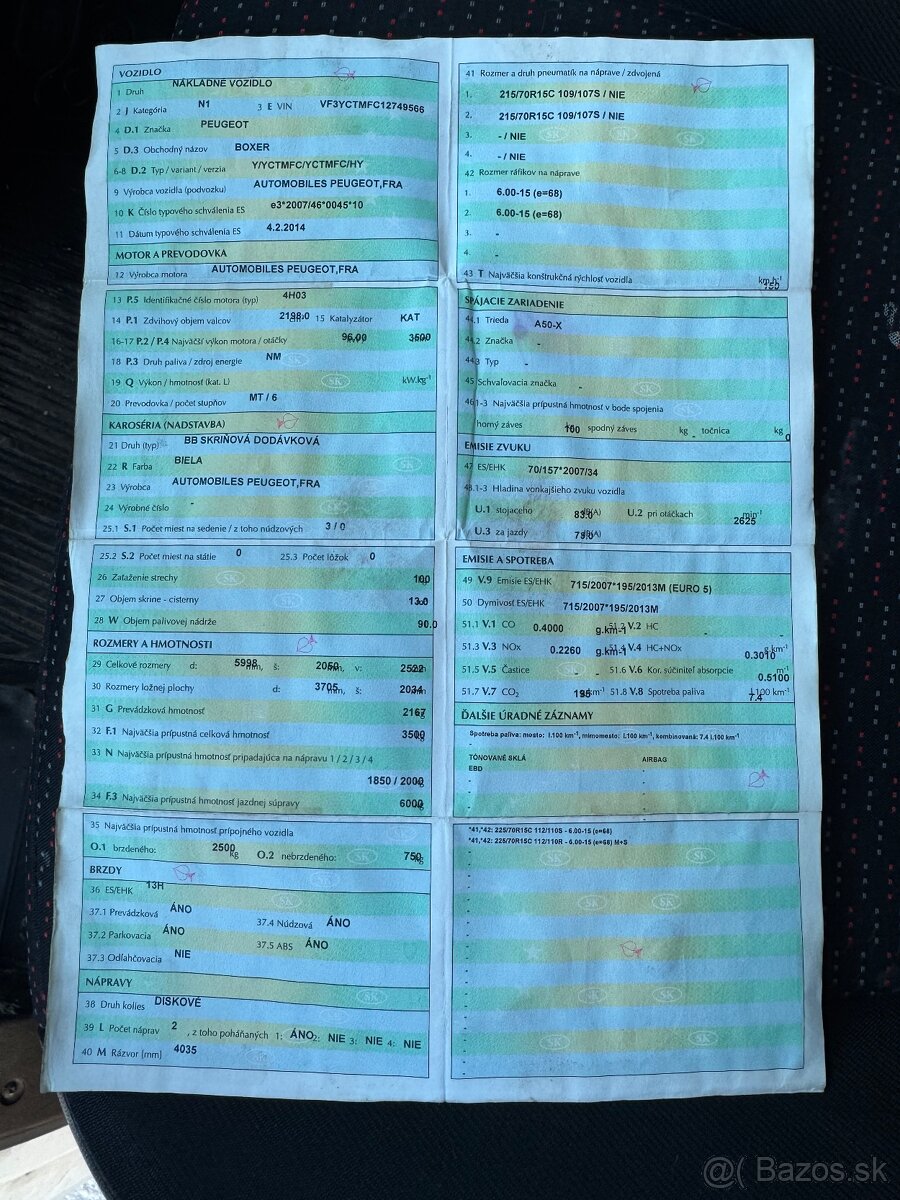 VOZIDLO
1 Druh NÁKLADNÉ VOZIDLO
2 J Kategória N1 3 E VIN VF3YCTMFC12749566
4 D.1 Značka PEUGEOT
5 D.3 Obchodný názov BOXER
6-8 D.2 Typ / variant / verzia Y/YCTMFC/YCTMFC/HY
9 Výrobca vozidla (podvozku) AUTOMOBILES PEUGEOT,FRA
10 K Číslo typového schválenia ES e3*2007/46*0045*10
11 Dátum typového schválenia ES 4.2.2014
MOTOR A PREVODOVKA
12 Výrobca motora AUTOMOBILES PEUGEOT,FRA
13 P.5 Identifikačné číslo motora (typ) 4H03
14 P.1 Zdvihový objem valcov 2198.0 15 Katalyzátor KAT
16-17 P.2 / P.4 Najväčší výkon motora / otáčky 96.00 3500
18 P.3 Druh paliva / zdroj energie NM
19 Q Výkon / hmotnosť (kat. L) kW.kg-1
20 Prevodovka / počet stupňov MT / 6
KAROSÉRIA (NADSTAVBA)
21 Druh (typ) BB SKRIŇOVÁ DODÁVKOVÁ
22 R Farba BIELA
23 Výrobca AUTOMOBILES PEUGEOT,FRA
24 Výrobné číslo -
25.1 S.1 Počet miest na sedenie / z toho núdzových 3 / 0
25.2 S.2 Počet miest na státie 0 25.3 Počet lôžok 0
26 Zaťaženie strechy 100
27 Objem skrine - cisterny 13.0
28 W Objem palivovej nádrže 90.0
ROZMERY A HMOTNOSTI
29 Celkové rozmery d: 5998 mm, š: 2050 mm, v: 2522
30 Rozmery ložnej plochy d: 3705 mm, š: 2034
31 G Prevádzková hmotnosť 2167
32 F.1 Najväčšia prípustná celková hmotnosť 3500
33 N Najväčšia prípustná hmotnosť pripadajúca na nápravu 1 / 2 / 3 / 4
1850 / 2000
34 F.3 Najväčšia prípustná hmotnosť jazdnej súpravy 6000
35 Najväčšia prípustná hmotnosť prípojného vozidla
O.1 brzdeného: 2500 kg O.2 nebrzdeného: 750
BRZDY
36 ES/EHK 13H
37.1 Prevádzková ÁNO 37.4 Núdzová ÁNO
37.2 Parkovacia ÁNO 37.5 ABS ÁNO
37.3 Odľahčovacia NIE
NÁPRAVY
38 Druh kolies DISKOVÉ
39 L Počet náprav 2 , z toho poháňaných 1: ÁNO 2: NIE 3: NIE 4: NIE
40 M Rázvor [mm] 4035
41 Rozmer a druh pneumatík na náprave / zdvojená
1. 215/70R15C 109/107S / NIE
2. 215/70R15C 109/107S / NIE
3. - / NIE
4. - / NIE
42 Rozmer ráfikov na náprave
1. 6.00-15 (e=68)
2. 6.00-15 (e=68)
3. -
4. -
43 T Najväčšia konštrukčná rýchlosť vozidla km.h-1
SPÁJACIE ZARIADENIE
44.1 Trieda A50-X
44.2 Značka -
44.3 Typ -
45 Schvaľovacia značka -
46.1-3 Najväčšia prípustná hmotnosť v bode spojenia
horný záves 100 spodný záves kg - točnica kg 0
EMISIE ZVUKU
47 ES/EHK 70/157*2007/34
48.1-3 Hladina vonkajšieho zvuku vozidla
U.1 stojaceho 83.0 dB(A) U.2 pri otáčkach 2625 min-1
U.3 za jazdy 79.0 dB(A)
EMISIE A SPOTREBA
49 V.9 Emisie ES/EHK 715/2007*195/2013M (EURO 5)
50 Dymivosť ES/EHK 715/2007*195/2013M
51.1 V.1 CO 0.4000 g.km-1 51.2 V.2 HC -
51.3 V.3 NOx 0.2260 g.km-1 51.4 V.4 HC+NOx 0.3010 g.km-1
51.5 V.5 Častice - 51.6 V.6 Kor. súčiniteľ absorpcie 0.5100 m-1
51.7 V.7 CO2 195 g.km-1 51.8 V.8 Spotreba paliva 7.4 l.100 km-1
ĎALŠIE ÚRADNÉ ZÁZNAMY
Spotreba paliva: mesto: l.100 km-1, mimomesto: l.100 km-1, kombinovaná: 7.4 l.100 km-1
TÓNOVANÉ SKLÁ AIRBAG
EBD
*41,*42: 225/70R15C 112/110S - 6.00-15 (e=68)
*41,*42: 225/70R15C 112/110R - 6.00-15 (e=68) M+S
@( Bazos.sk